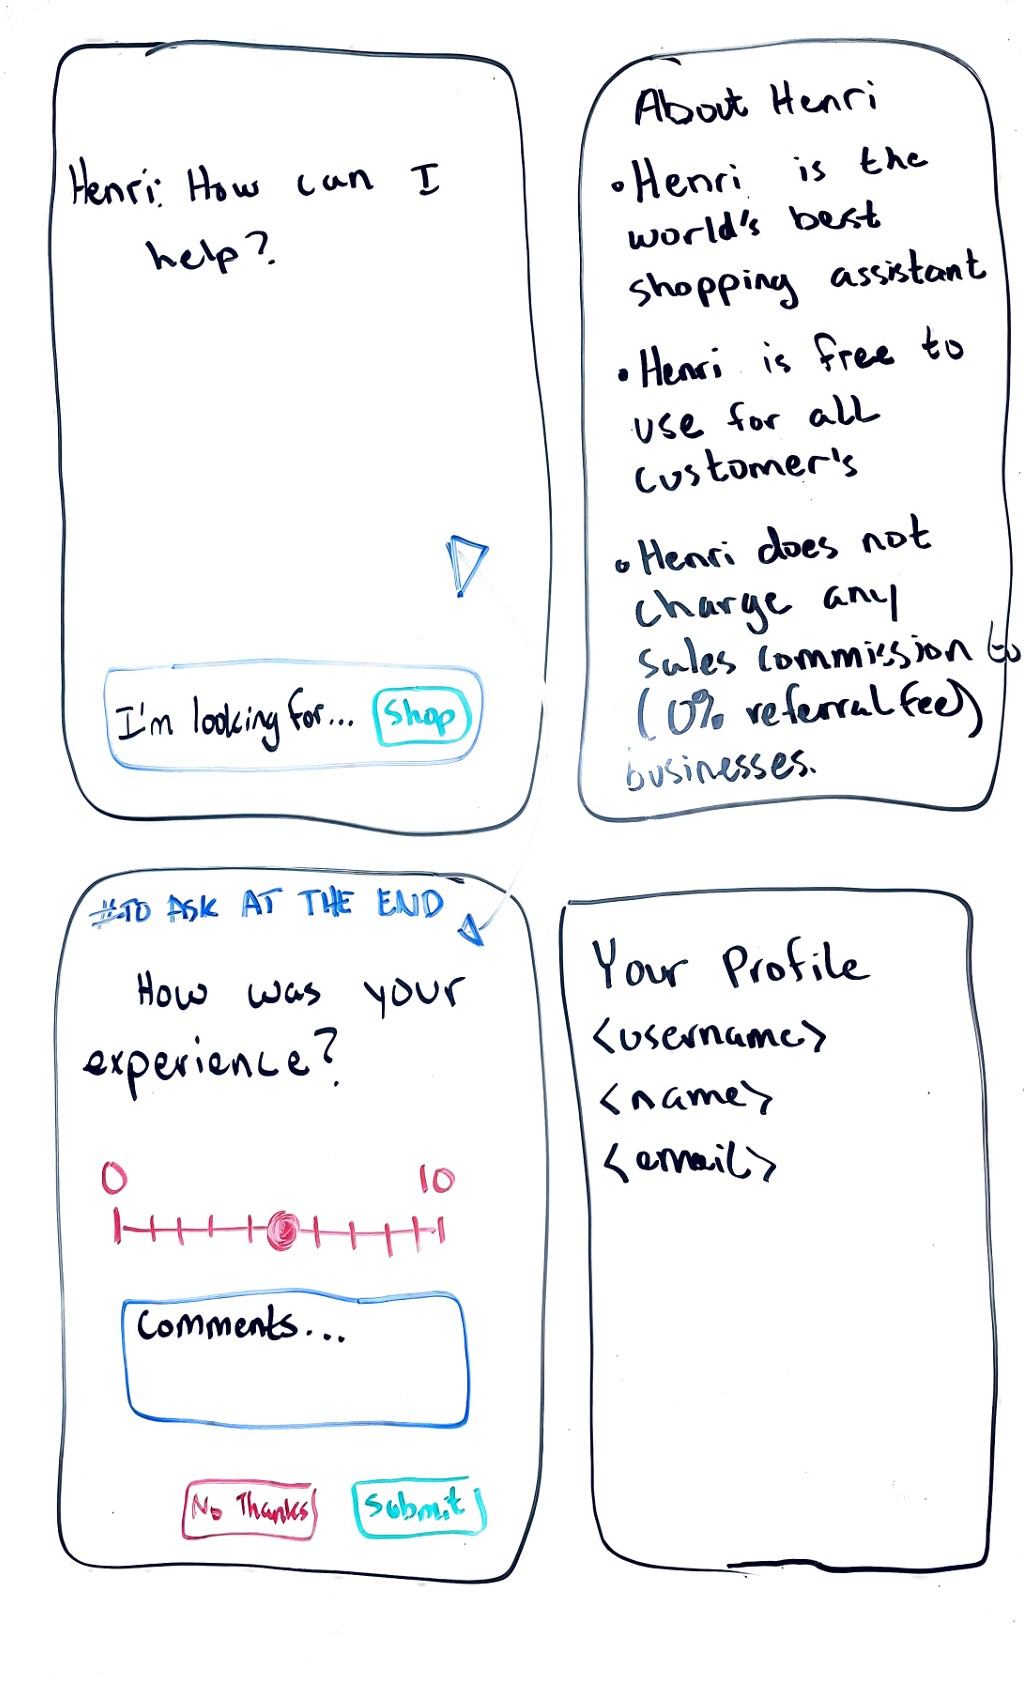 Henri: How can I
help?
I'm looking for... Shop
About Henri
• Henri is the
world's best
shopping assistant
• Henri is free to
use for all
customer's
• Henri does not
charge any
sales commission to
(0% referral fee)
businesses.
#TO ASK AT THE END
How was your
experience?
0 10
Comments...
No Thanks Submit
Your Profile
<username>
<name>
<email>